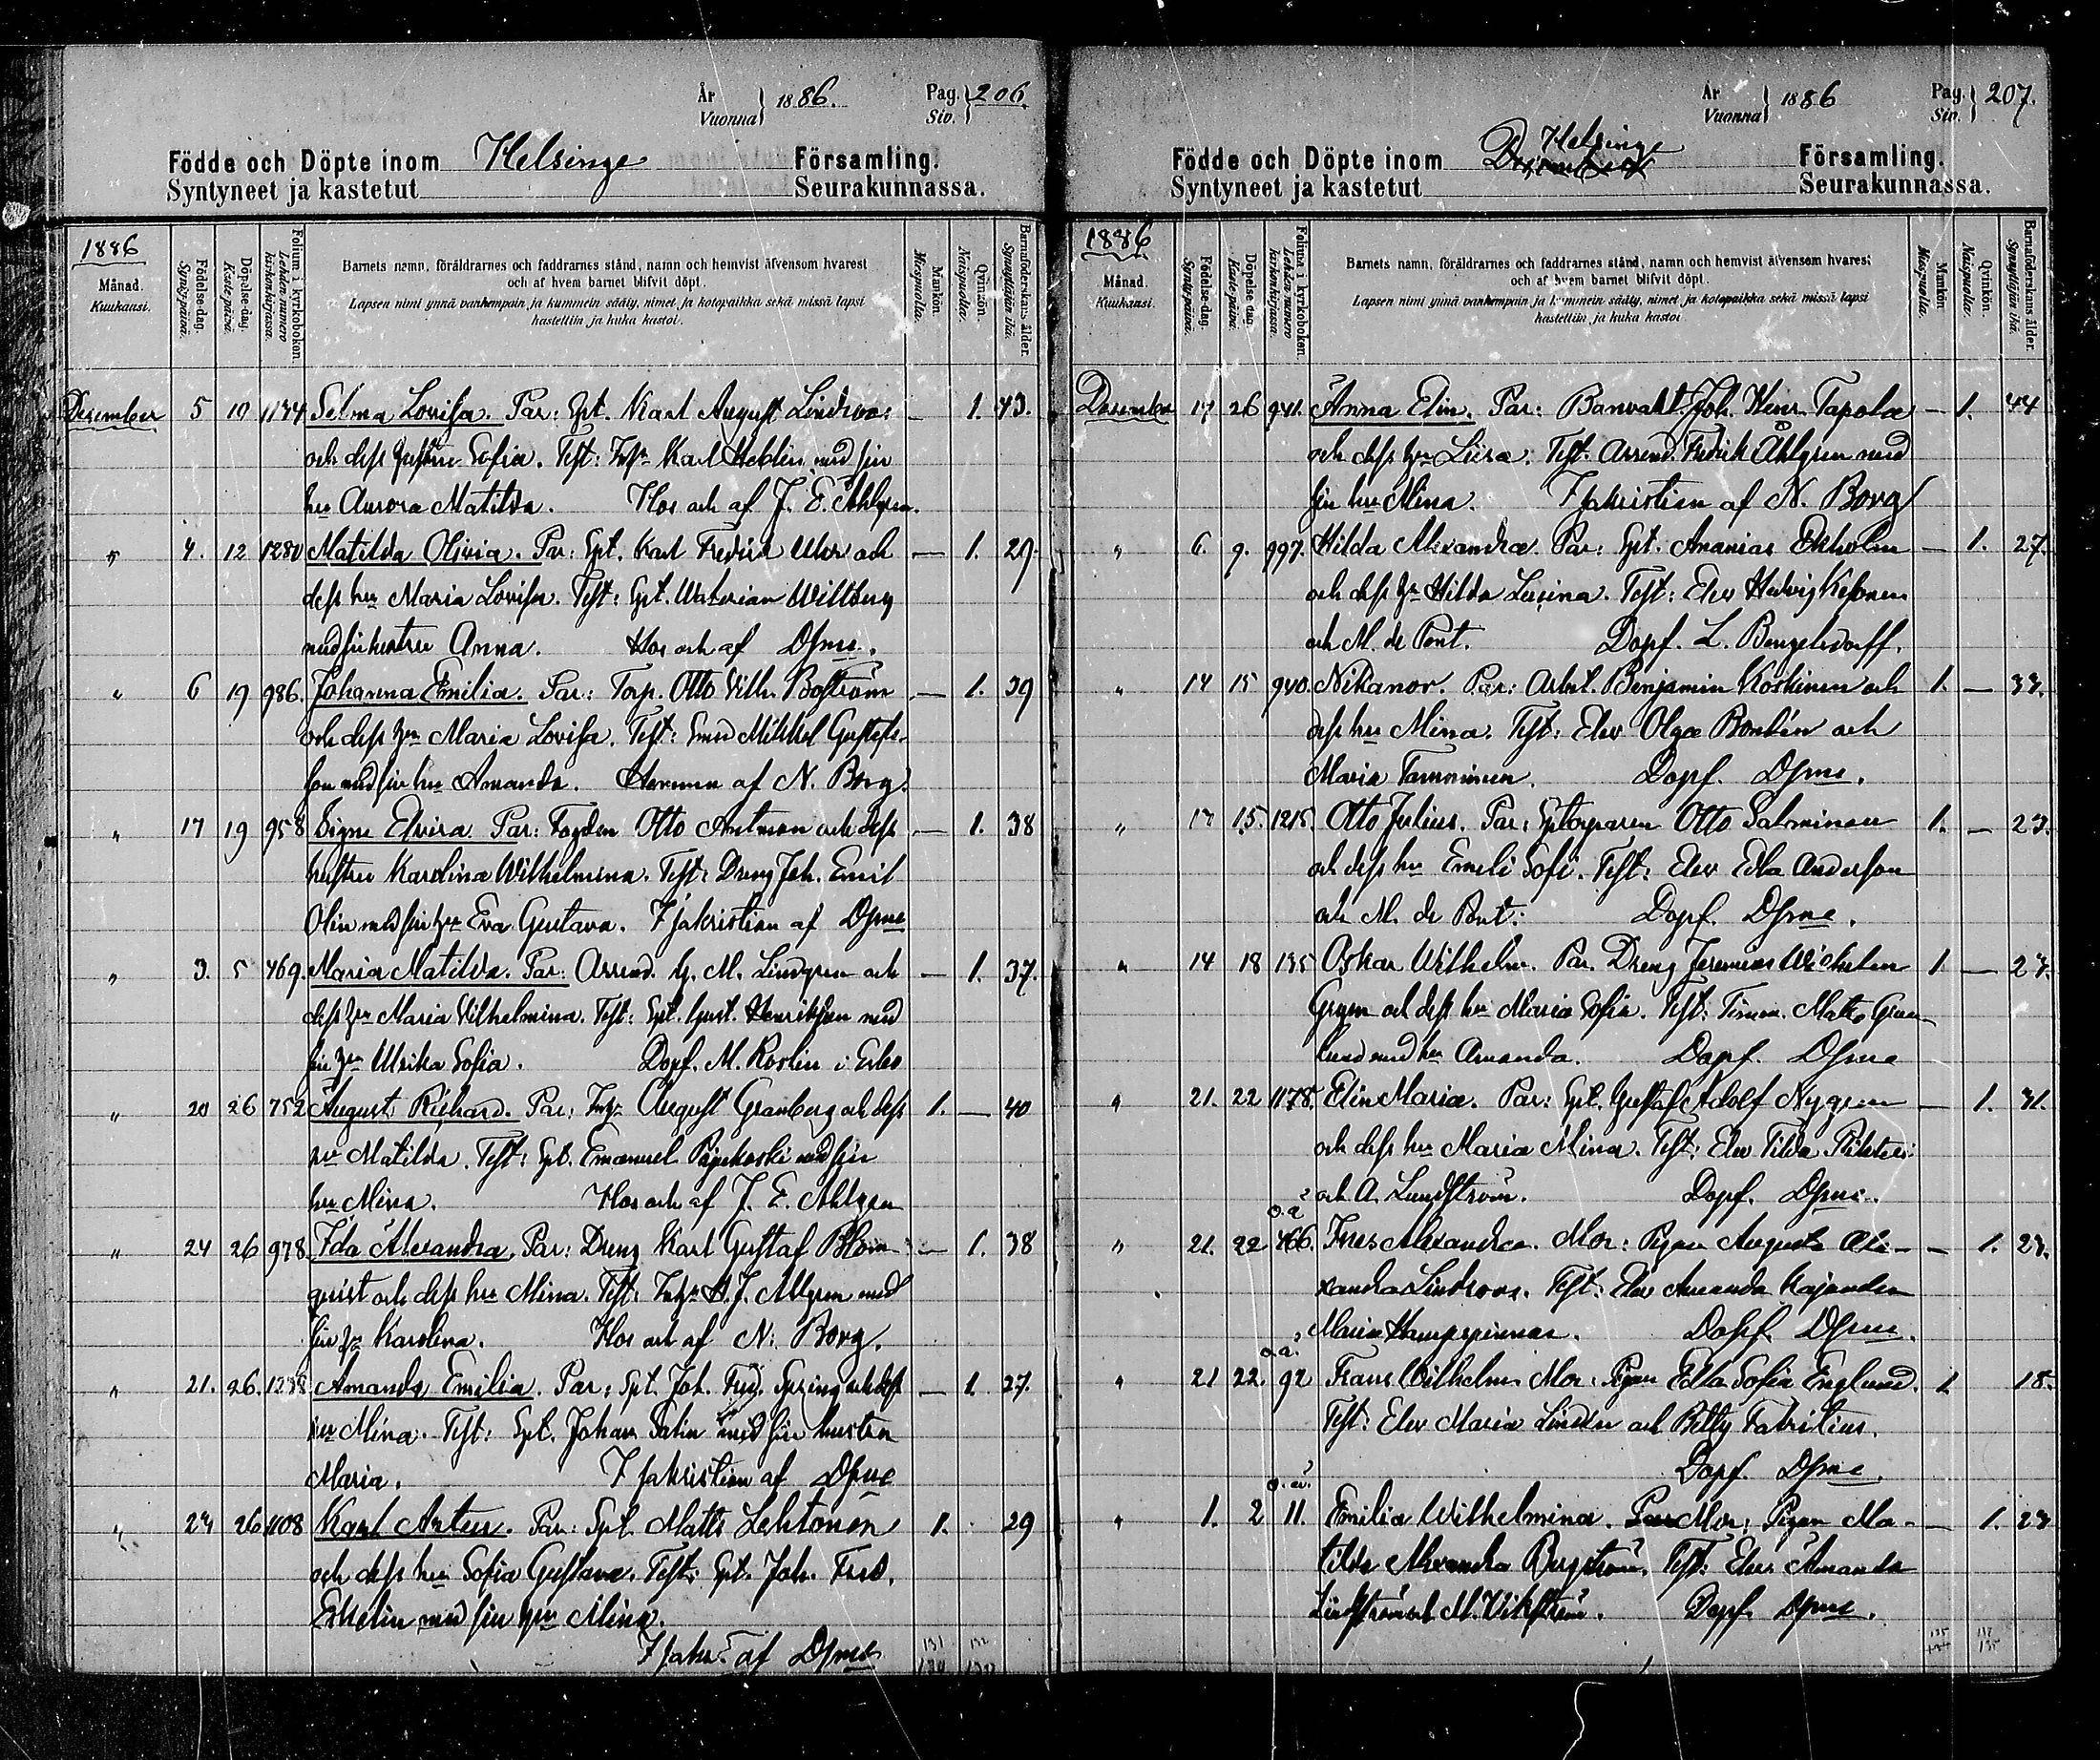 År
Vuonna
1886.
Pag.
Siv.
206.
Födde och Döpte inom Helsinge Församling.
Syntyneet ja kastetut Seurakunnassa.
1886
Månad.
Kuukausi.
Födelse-dag.
Syntypäivä.
Döpelse-dag.
Kastepäivä.
Folium i kyrkoboken.
Lehden numero kirkonkirjassa.
Barnets namn, föräldrarnes och faddrarnes stånd, namn och hemvist äfvensom hvarest
och af hvem barnet blifvit döpt.
Lapsen nimi ynnä vanhempain ja kummein sääty, nimet ja kotopaikka sekä missä lapsi
kastettiin ja kuka kastoi.
Mankön.
Miespuolia.
Qvinkön.
Naispuolia.
Barnaföderskans ålder.
Synnyttäjän ikä.
December 5 10 1134 Selma Lovisa. Par: Spt. Karl August Lindroos — 1. 43.
och dess hustru Sofia. Test: Karl Heblin med sin
hu Aurora Matilda. Hos och af J. E. Ahlgren.
" 4. 12 1280 Matilda Olivia. Par: Spt. Karl Fredrik och — 1. 29.
dess hu Maria Lovisa. Test: Spt. Waterian Willberg
med sin hustru Anna. Hos och af Dsme.
" 6 19 986. Johanna Emilia. Par: Torp. Otto Vilh. Boström — 1. 39
och dess hu Maria Lovisa. Test: Smed Mikkel Gustafs-
son med sin hu Amanda. Hemma af N. Borg.
" 17 19 958 Signe Elvira. Par: Fogden Otto Antman och dess — 1. 38
hustru Karolina Wilhelmina. Test: Dreng Joh. Emil
Olin med sin hu Eva Gustava. I sakristian af Dsme
" 3. 5 469. Maria Matilda. Par: Arrend. G. M. Lindgren och — 1. 37.
dess hu Maria Vilhelmina. Test: Spt. Gust. Henriksson med
sin hu Ulrika Sofia. Dopf. M. Roslin i Esbo
" 20 26 752 August Richard. Par: August Granberg och dess 1. — 40
hu Matilda. Test: Spt. Emanuel med sin
hu Mina. Hos och af J. E. Ahlgren
" 24 26 978 Ida Alexandra. Par: Dreng Karl Gustaf Blom- — 1. 38
qvist och dess hu Mina. Test: H. J. Ahlgren med
sin hu Karolina. Hos och af N. Borg.
" 21. 26. Amanda Emilia. Par: Spt. Joh. Fred. Spring och dess — 1. 27.
hu Mina. Test: Spt. Johan Salin med sin hustru
Maria. I sakristian af Dsme
" 26 1108 Karl Artur. Par: Spt. Matts Lehtonen 1. 29
och dess hu Sofia Gustava. Test: Spt. Joh. Fred.
Eskelin med sin hu Mina.
I sakr. af Dsme
År
Vuonna
1886
Pag.
Siv.
207.
Helsinge
Födde och Döpte inom December Församling.
Syntyneet ja kastetut Seurakunnassa.
1886
Månad.
Kuukausi.
Födelse-dag.
Syntypäivä.
Döpelse dag.
Kastepäivä.
Folium i kyrkoboken.
Lehden numero kirkonkirjassa.
Barnets namn, föräldrarnes och faddrarnes stånd, namn och hemvist äfvensom hvarest
och af hvem barnet blifvit döpt.
Lapsen nimi ynnä vanhempain ja kummein sääty, nimet ja kotopaikka sekä missä lapsi
kastettiin ja kuka kastoi
Mankön.
Miespuolia.
Qvinkön.
Naispuolia.
Barnaföderskans ålder.
Synnyttäjän ikä.
December 17 26 941. Anna Elin. Par: Banvakt. Joh. Henr. Tapola — 1. 44
och dess hu Liisa. Test: Arrend. Fredrik Åhlgren med
sin hu Mina. I sakristian af N. Borg
" 6. 9. 997. Hilda Alexandra. Par: Spt. Ananias Ekholm — 1. 27.
och dess hu Hilda Lucina. Test: Elev Hedvig
och M. de Pont. Dopf. L. Bengelsdorff.
" 14 15 940. Nikanor. Par: Arbet. Benjamin Koskinen och 1. — 33.
dess hu Mina. Test: Elev Olga Bondén och
Maria Tamminen. Dopf. Dsme.
" 15. 1215. Otto Julius. Par: Sptorparen Otto Salminen 1. — 23.
och dess hu Emeli Sofi. Test: Elev Edla Andersson
och M. de Pont: Dopf. Dsme.
" 14 18 135 Oskar Wilhelm. Par. Dreng Jeremias Wilhelm 1. —
och dess hu Maria Sofia. Test: Timm. Matts Gran-
lund med hu Amanda. Dopf. Dsme
" 21. 22 1178. Elin Maria. Par: Spt. Gustaf Adolf Nygren — 1. 31.
och dess hu Maria Mina. Test: Elev Tilda
och A. Lundström. Dopf. Dsme.
o.ä.
" 21. 22 466. Ines Alexandra. Mor: Pigan Augusta Ale- — 1. 23.
xandra Lindroos. Test: Elev Amanda Kajander
Maria Hamppinnar. Dopf. Dsme.
o.ä.
" 21 22. 92 Frans Wilhelm Mor: Pigan Edla Sofia Englund. 1 18.
Test: Elev Maria Linder och Betty Fabritius.
Dopf. Dsme.
o.ä.
" 1. 2 11. Emilia Wilhelmina. Par Mor: Pigan Ma- — 1. 23
tilda Alexandra Bergström. Test: Elev Amanda
Lindström och M. Vikström. Dopf. Dsme.